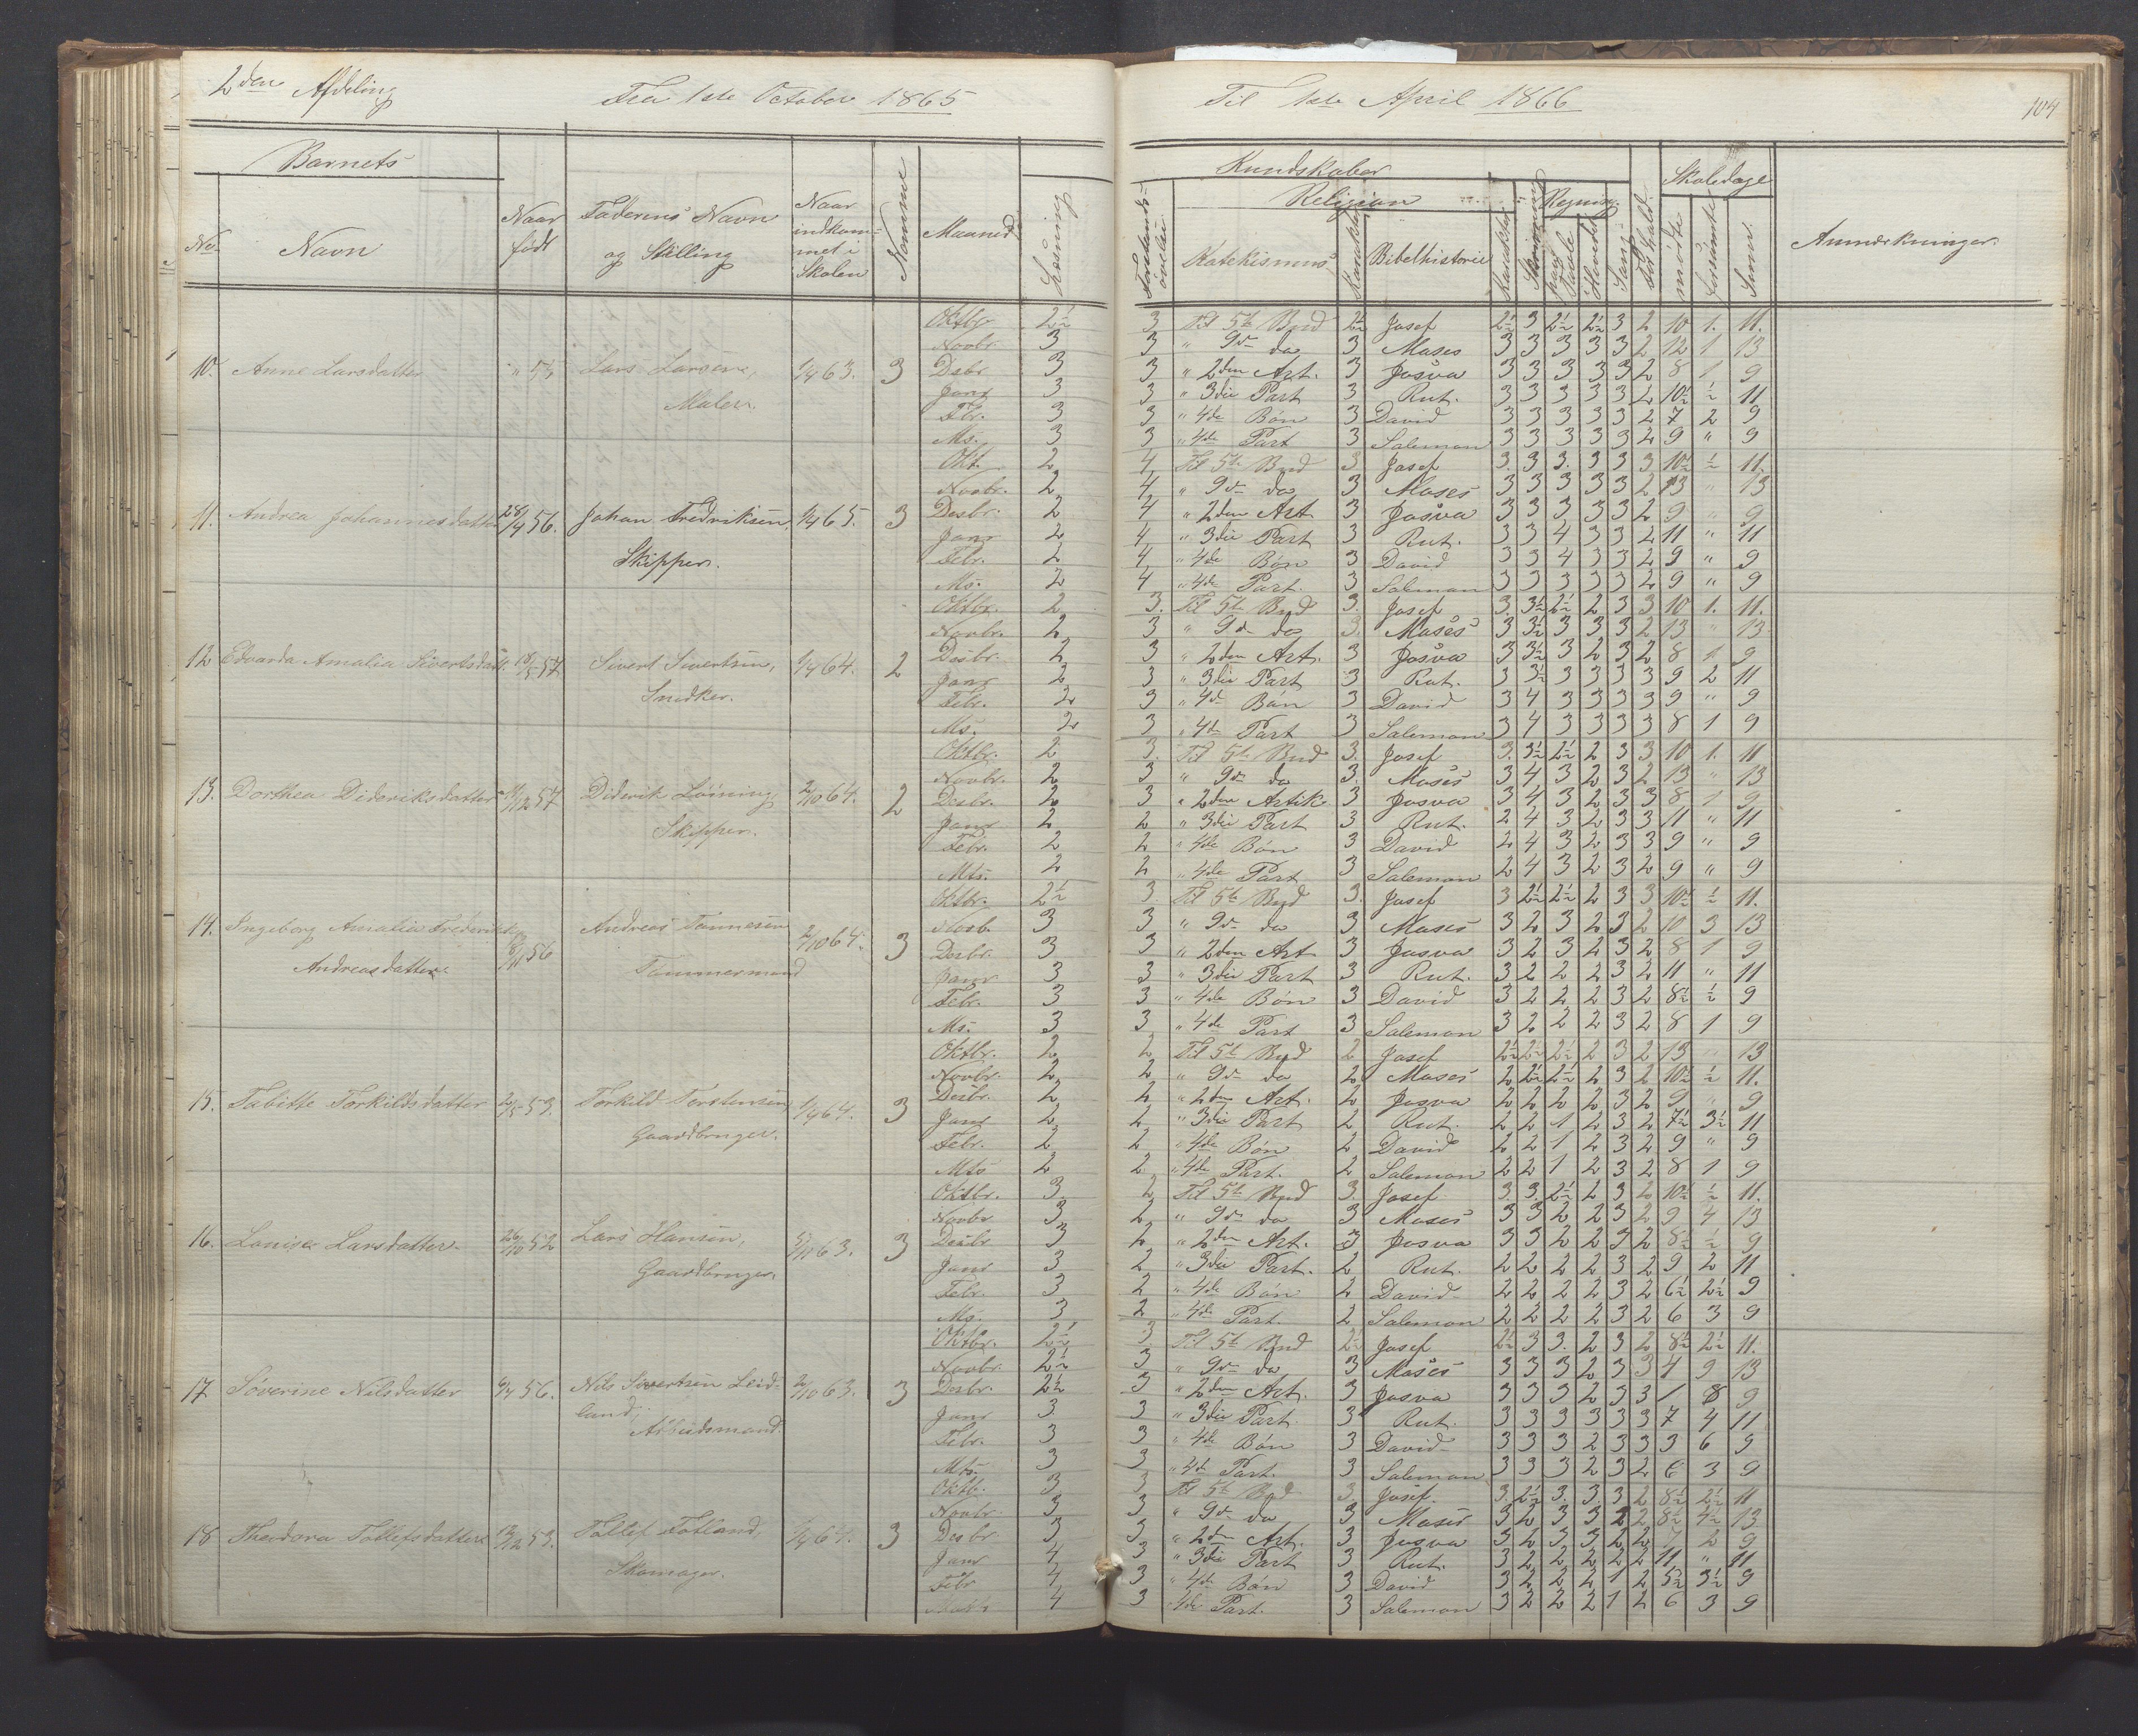 2den Afdeling
Fra 1ste October 1865
Til 1ste April 1866
104
Barnets
No
Navn
Naar født
Faderens Navn og Stilling
Naar indkommet i Skolen
Nummer
Maaned
Læsning
Kundskaber
Religion
Katekismus
Karakter
Bibelhistorie
Karakter
Skrivning
Regning
paa Tavle
Hovedet
Sang
Forhold
Skoledage
mødte
forsømte
Sum
Anmærkninger.
10. Anne Larsdatter " 53 Lars Larsen, Maler. 1/4 63. 3
Oktbr 2½ 3 Til 5te Bud 2½ Josef 2½ 3 2½ 2½ 3 2 10 1. 11.
Novbr. 3 3 " 9de do 3 Moses 3 3 3 3 3 2 12 1 13
Desbr 3 3 " 2den Art. 3 Josva 3 3 3 3 3 2 8 1 9
Janr 3 3 " 3die Part 3 Rut. 3 3 3 3 3 2 10½ ½ 11
Fbr. 3 3 " 4de Bøn 3 David 3 3 3 3 3 2 7 2 9
Ms. 3 3 " 4de Part 3 Salemon 3 3 3 3 3 2 9 " 9
11. Andrea Johannesdatter 28/4 56. Johan Fredriksen, Skipper. 1/4 65. 3
Okt. 2 4 Til 5te Bud 3. Josef 3. 3 3. 3 3 3 10½ ½ 11.
Novbr. 2 4 " 9de do 3 Moses 3 3 3 3 3 2 13 " 13
Desbr. 2 4 " 2den Art 3 Josva 3 3 3 3 3 2 9 9
Janr 2 4 " 3die Part 3 Rut. 3 3 4 3 3 2 11 " 11
Febr. 2 4 " 4de Bøn 3 David 3 3 4 3 3 2 9 " 9
Ms. 2 4 " 4de Part. 3 Salemon 3 3 3 3 3 2 9 " 9
12 Edvarda Amalia Sivertsdatt. 18/5 57. Sivert Sivertsen, Snedker. 1/4 64. 2
Oktbr. 2 3. Til 5te Bud 3. Josef 3. 3½ 2½ 2 3 3 10 1. 11.
Novbr. 2 3 " 9de do 3. Moses 3 3½ 3 3 3 2 13 " 13
Desbr. 2 3 " 2den Art. 3 Josva 3 3½ 3 2 3 2 8 1 9
Janr 2 3 " 3die Part 3 Rut. 3 3½ 3 3 3 3 9 2 11
Febr. 2 3 " 4de Bøn 3 David 3 4 3 3 3 3 9 " 9
Ms. 2 3 " 4de Part 3 Salemon 3 4 3 3 3 3 8 1 9
13. Dorthea Dideriksdatter 11/12 57 Diderik Löining Skipper. 2/10 64. 2
Oktbr. 2 3. Til 5te Bud 3. Josef 3. 3½ 2½ 2 3 3 10 1. 11
Novbr. 2 3 " 9de do 3. Moses 3 4 3 2 3 2 13 " 13
Desbr. 2 3 " 2den Artik. 3 Josva 3 4 3 2 3 3 8 1 9
Janr 2 2 " 3die Part 3 Rut. 2 4 3 2 3 3 11 " 11
Febr. 2 2 " 4de Bøn 3 David 2 4 3 2 3 3 9 " 9
Mts. 2 2 " 4de Part 3 Salemon 2 4 3 2 3 2 9 " 9
14. Ingeborg Amalia Frederikke Andreasdatter 8/11 56 Andreas Tönnesen Tömmermand 2/10 64. 3
Oktbr. 2½ 3. Til 5te Bud 3. Josef 3 2½ 2½ 2 3 3 10½ ½ 11.
Novb. 3 3 " 9de do 3 Moses 3 2 3 2 3 2 10 3 13
Desbr. 3 3 " 2den Art 3 Josva 3 2 3 2 3 2 8 1 9
Janr 3 3 " 3die Part 3 Rut. 3 2 2 2 3 2 11 " 11
Febr. 3 3 " 4de Bøn 3 David 3 2 2 2 3 2 8½ ½ 9
Ms. 3 3 " 4de Part 3 Salemon 3 2 2 2 3 2 8 1 9
15. Tabitte Torkildsdatter 2/5 53. Torkild Torstensen, Gaardbruger. 1/4 64. 3
Oktbr. 2 2 Til 5te Bud 2 Josef 2½ 2½ 2½ 2 3 2 13 " 13
Novbr. 2 2 " 9de do 2 Moses 2 2½ 2½ 2 3 2 10½ ½ 11.
Desbr. 2 2 " 2den Art. 2 Josva 2 2 2 2 3 2 9 " 9
Janr 2 2 " 3die Part 2 Rut. 2 2 1 2 3 2 7½ 3½ 11
Febr. 2 2 " 4de Bøn 2 David 2 2 1 2 3 2 9 " 9
Mts 2 2 " 4de Part. 2 Salemon 2 2 1 2 3 2 8 1 9
16. Louise Larsdatter 26/10 52 Lars Hansen, Gaardbruger. 5/10 63. 3
Oktbr. 3 2 Til 5te Bud 3. Josef 3. 3. 2½ 2 3 2 10½ ½ 11.
Novbr 3 2 " 9de do 3 Moses 3 3 2 2 3 2 9 4 13
Desbr 3 2 " 2den Art. 3 Josva 3 3 2 2 3 2 8½ ½ 9
Janr 3 2 " 3die Part. 2 Rut. 2 2 2 2 3 2 9 2 11
Febr. 3 2 " 4de Bøn 2 David 2 2 2 2 3 2 6½ 2½ 9
Ms. 3 2 " 4de Part. 2 Salemon 2 2 2 2 3 2 6 3 9
17 Severine Nilsdatter 9/4 56. Nils Sivertsen Leidland, Arbeidsmand. 2/10 63. 3
Oktbr. 2½ 3 Til 5te Bud 2½ Josef 2½ 3 3. 2 3 2 8½ 2½ 11.
Novbr. 2½ 3 " 9de do 3 Moses 3 3 3 2 3 3 4 9 13
Desbr. 2½ 3 " 2den Art. 3 Josva 3 3 3 2 3 3 1 8 9
Janr 3 3 " 3die Part. 3 Rut. 3 3 3 3 3 3 7 4 11
Febr. 3 3 " 4de Bøn 3 David 3 3 3 2 3 3 3 6 9
Mts. 3 3 " 4de Part. 3 Salemon 3 3 3 2 3 2 6 3 9
18 Theodora Tollefsdatter 13/12 53. Tollef Fotland, Skomager. 1/4 64. 3
Oktb. 3 3 Til 5te Bud 3. Josef. 3. 2½ 3. 3. 3 2 8½ 2½ 11
Novbr 3 3 " 9de do 3 Moses 3 2 3 3 2 2 8½ 4½ 13
Desbr 3 3 " 2den Art. 3 Josva 3 2 3 3 2 2 7 2 9
Janr 4 3 " 3die Part 3 Rut. 3 2 2 2 2 2 11 " 11
Febr 4 3 " 4de Bøn 3 David 3 2 2 2 1 2 5½ 3½ 9
4 3 4de Part. 3 Salemon 3 2 2 2 1 2 6 3 9